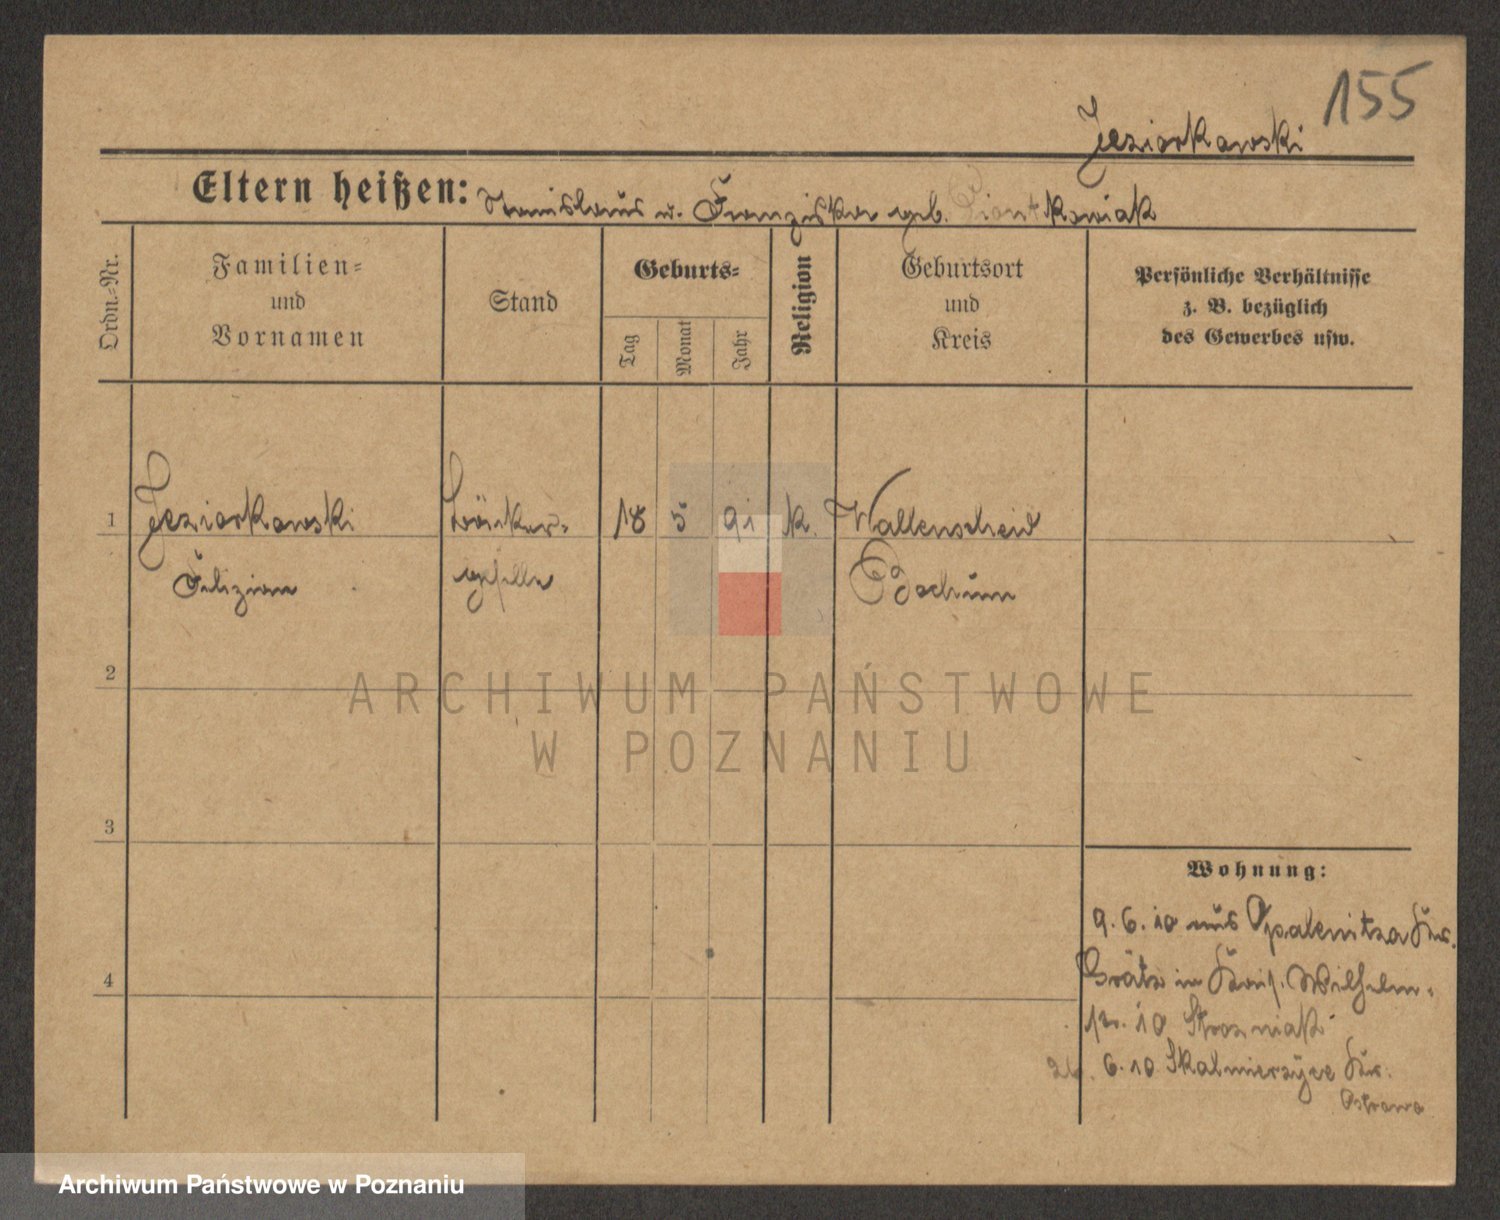 155
Jeziorkowski
Eltern heißen: Stanislaus u. Franziska geb. Piontkowiak
Ordn.-Nr.
Familien-
und
Vornamen
Stand
Geburts-
Tag
Monat
Jahr
Religion
Geburtsort
und
Kreis
Persönliche Verhältnisse
z. B. bezüglich
des Gewerbes usw.
1
Jeziorkowski
Felizian
geselle
18 5 91 k.
Wallenscheid
Bochum
2
ARCHIWUM PAŃSTWOWE
W POZNANIU
3
Wohnung:
9. 6. 10 aus Opalenitza Kr.
Grätz in Kais. Wilhelm-
10 Strozniak
4
26. 6. 10 Skalmierzyce Kr.
Ostrowo
Archiwum Państwowe w Poznaniu